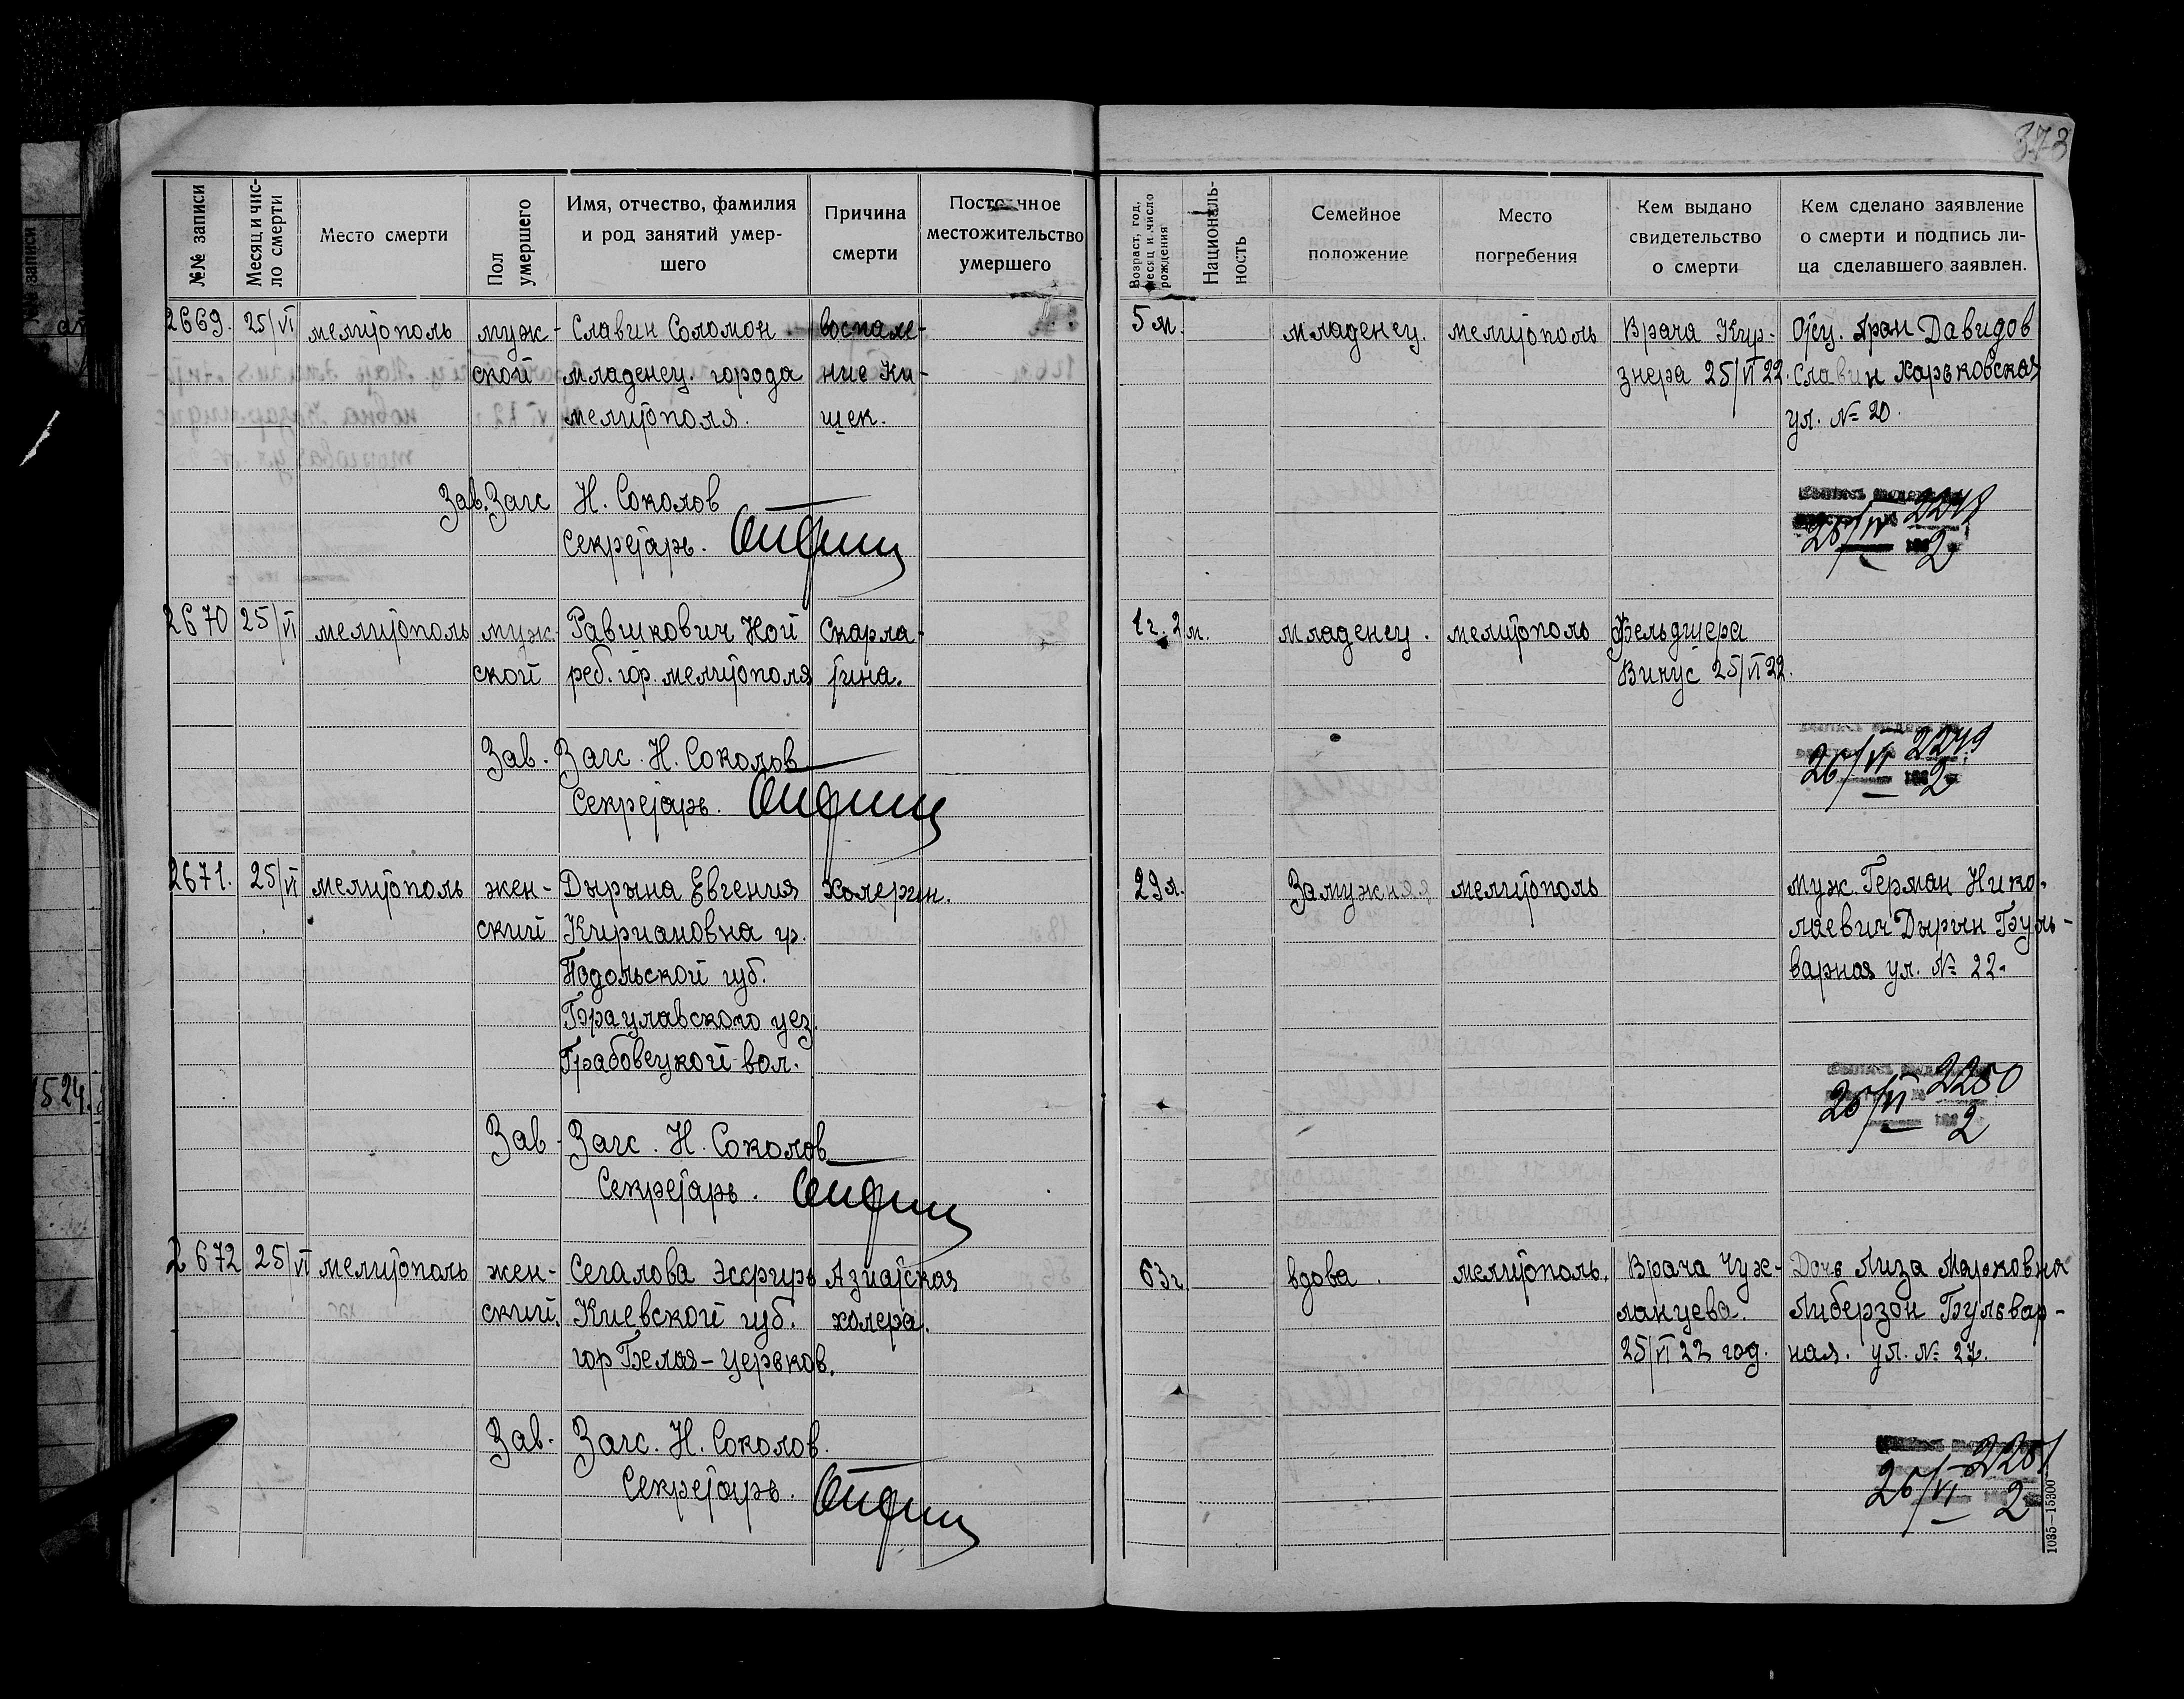 373
№№ записи
Месяц и чис-
ло смерти
Место смерти
Пол
умершего
Имя, отчество, фамилия
и род занятий умер-
шего
Причина
смерти
Постоянное
местожительство
умершего
Возраст, год,
месяц и число
рождения
Националь-
ность
Семейное
положение
Место
погребения
Кем выдано
свидетельство
о смерти
Кем сделано заявление
о смерти и подпись ли-
ца сделавшего заявлен.
2669. 25/VI мелитополь муж- Славин Соломон воспале- 5 м. младенец. мелитополь Врача Кир- Отец. Арон Давидов
ской младенец. города ние ки- знера 25/VI 22. Славин Харьковская
мелитополя. шек. ул. № 20.
Зав. Загс Н. Соколов
Секретарь.
2248
26/VI 2
2670 25/VI мелитополь муж- Равикович Ной Скарла- 1 г. 2 м. младенец. мелитополь Фельдшера
ской реб. гор. мелитополя тина. Винус 25/VI 22.
Зав. Загс. Н. Соколов
Секретарь.
2249
26/VI 2
2671. 25/VI мелитополь жен- Дырына Евгения Холерин. 29 л. Замужняя мелитополь муж. Герман Нико-
ский Кириановна гр. лаевич Дырын Буль-
Подольской губ. варная ул. № 22.
Брацлавского уез.
Грабовецкой вол.
Зав. Загс. Н. Соколов
Секретарь.
2250
26/VI 2
2672 25/VI мелитополь жен- Сегалова Эсфирь Азиатская 63 г. вдова. мелитополь. Врача Чуж- Дочь Лиза Марковна
ский. Киевской губ. холера. ланцева. Либерзон Бульвар-
гор Белая-Церьков. 25/VI 22 год. ная. ул. № 27.
Зав. Загс. Н. Соколов.
Секретарь.
2251
26/VI 2
1035—15300
1524.